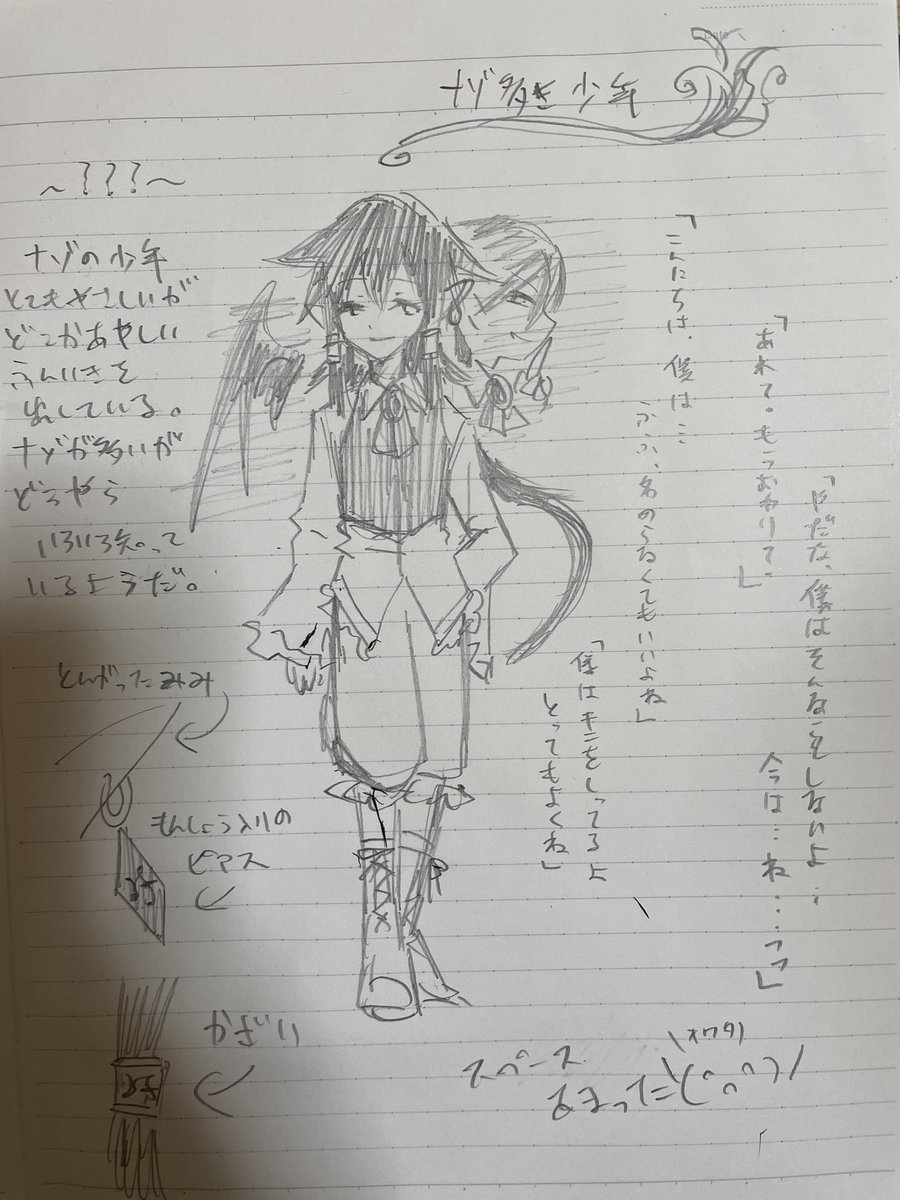 Date
ナゾ多き少年
～???～
ナゾの少年
とてもやさしいが
どこかあやしい
ふんいきを
出している。
ナゾが多いが
どうやら
いろいろ知って
いるようだ。
「こんにちは、僕は…
ふふ、名のらなくてもいいよね」
「あれて。もうおわりて。」
「やだな、僕はそんなことをしないよ…
今は…ね…っ」
「僕はキミをしってるよ
とってもよくね」
とんがったみみ
もんしょう入りの
ピアス
かざり
スペース
あまった
\オワタ/
\(^o^)/